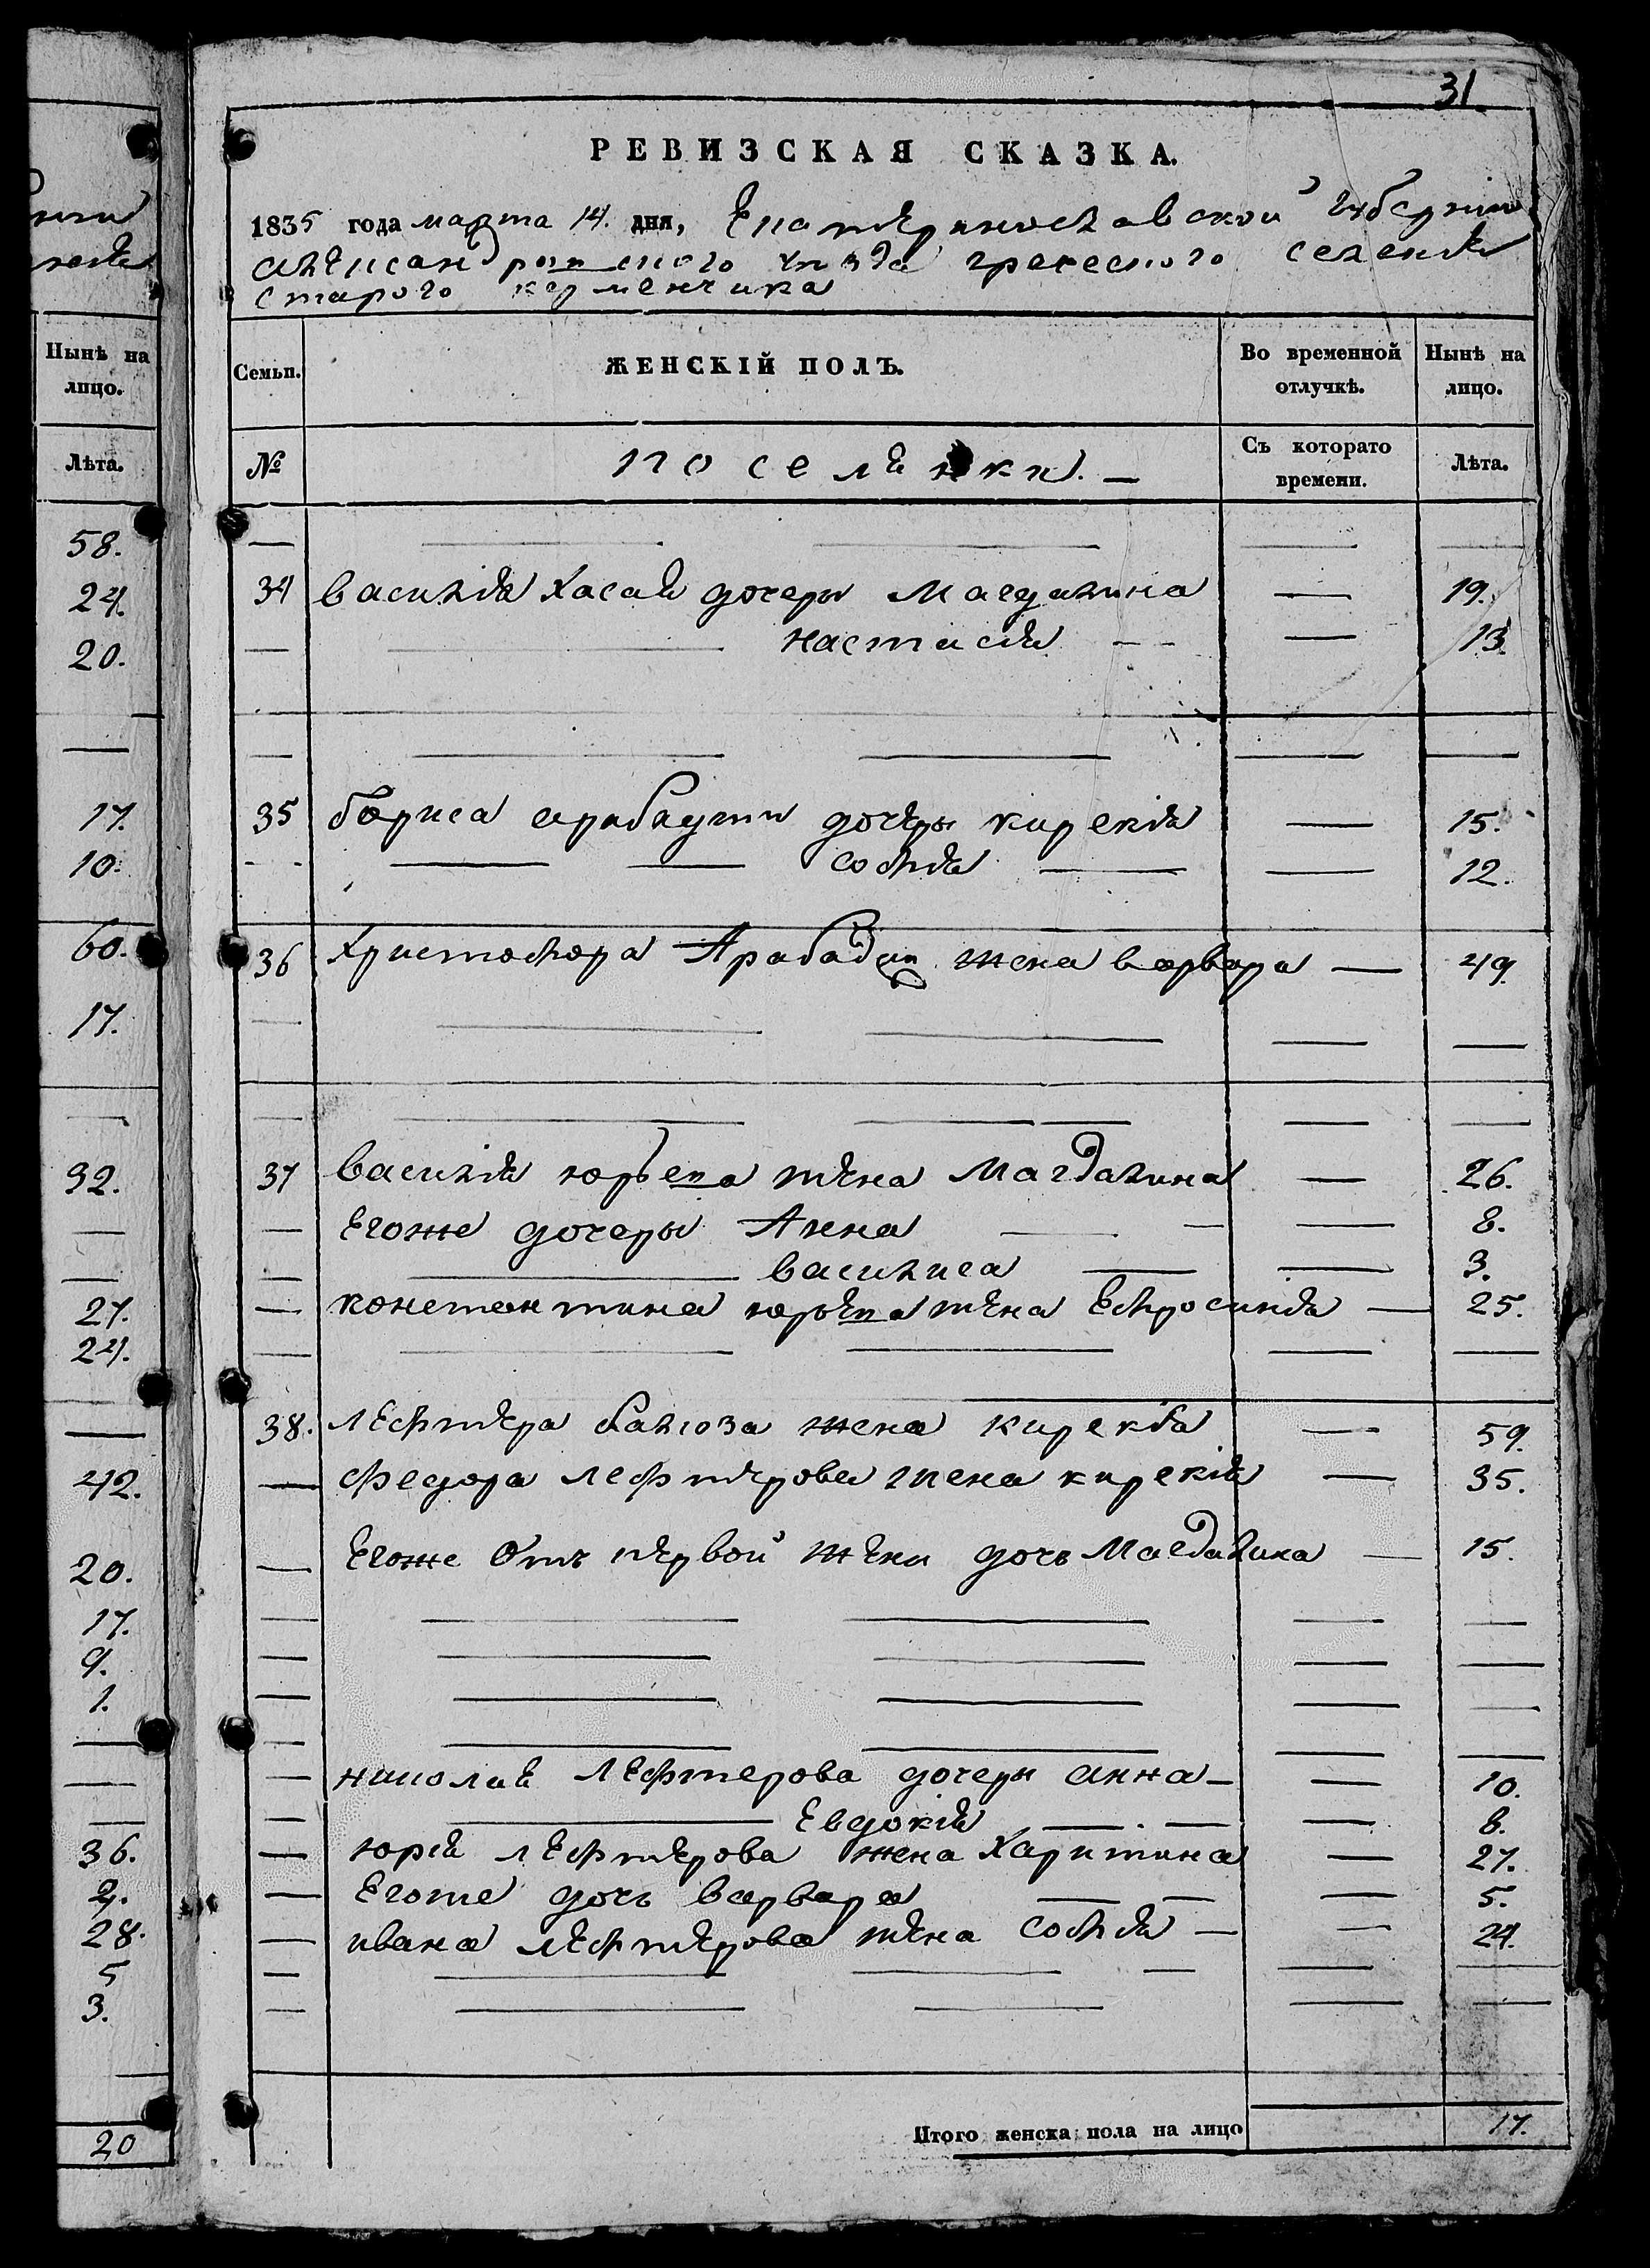 31.
РЕВИЗСКАЯ СКАЗКА.
1835 года марта 14. дня, Екатериносλавской губернии
Алексан ровского уезда греческого селения
старого керменчика
Семьи.
ЖЕНСКІЙ ПОЛЪ.
Во временной отлучкѣ.
Нынѣ на лицо.
№
поселянки. —
Съ которато времени.
Лѣта.
34 василия Хасая дочеры Магдалина — 19.
— — настасия — — 13.
35 бориса арабаджи дочеры кирекия — 15.
— — — софия — — 12.
36 Христофора Арабаджи жена варвара — 49.
37 василия юрьева жена Магдалина — 26.
— Егоже дочеры Анна — — 8.
— — василиса — — 3.
— константина юрьева жена Ефросиния — 25.
38. лефтера балюза жена кирекия — 59.
— федора лефтерова жена кирекия — 35.
— Егоже Отъ первой жены дочь Магдалина — 15.
— николая лефтерова дочеры анна — — 10.
— — Евдокия — . — — 8.
— юрия лефтерова жена Харитина — 27.
— Егоже дочь варвара — — — 5.
— ивана лефтерова жена софия — — 24.
Итого женска пола на лицо
17.
Нынѣ на лицо.
Лѣта.
58.
24.
20.
17.
10.
60.
17.
32.
27.
24.
42.
20.
17.
9.
1.
36.
2.
28.
5
3.
20